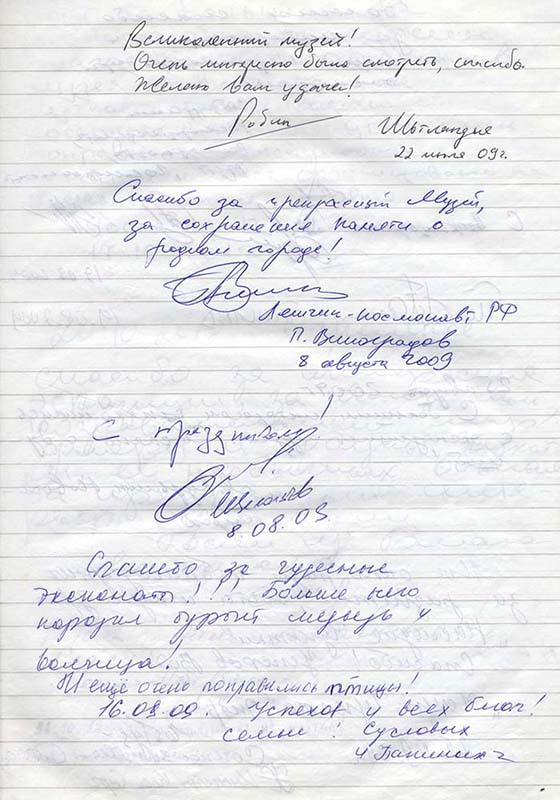 Великолепний музей!
Очень интересно было смотреть, спасибо.
Желаю Вам удачи!
Робин
Шотландия
22 июля 09г.
Спасибо за прекрасный Музей,
за сохранение памяти о
родном городе!
Летчик-космонавт РФ
П. Виноградов
8 августа 2009
С праздником!
8.08.09
Спасибо за чудесные
экспонаты!!! Больше всего
поразил бурый медведь и
волчица!
И ещё очень понравились птицы!
16.09.09. Успехов и всех благ!
семьи: Сусловых